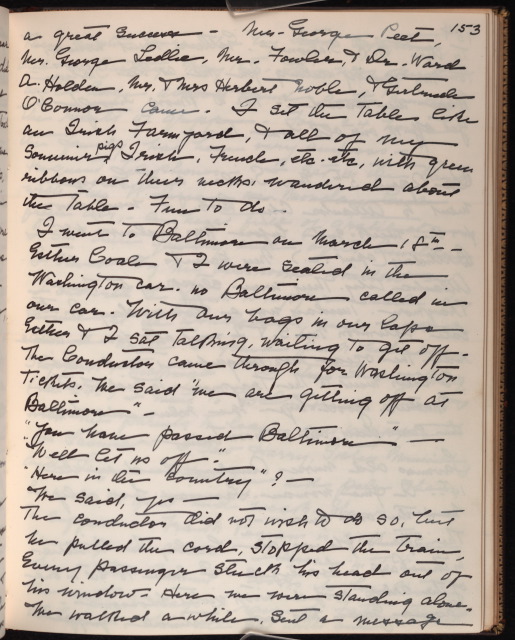 153
a great success - Mrs. George Peet,
Mr. George Leslie, Mr. Fowler, & Dr. Ward
A. Holden, Mr. & Mrs Herbert Noble, & Gertrude
O'Connor came. I set the table like
an Irish Farmyard, & all of my
souvenir pigs Irish, French, etc. etc, with green
ribbons on their necks wandered about
the table. Fun to do.
I went to Baltimore on March 18th -
Esther Coale & I were seated in the
Washington car. no Baltimore called in
our car. With our bags in our laps
Esther & I sat talking, waiting to get off -
The Conductor came through for Washington
Tickets. We said "we are getting off at
Baltimore" -
"You have passed Baltimore" -
"Well let us off".
"Here in the country"? -
We said, yes -
The conductor did not wish to do so, but
he pulled the cord, stopped the train,
Every passenger stuck his head out of
his window - Here we were standing alone.
We walked awhile, sent a message